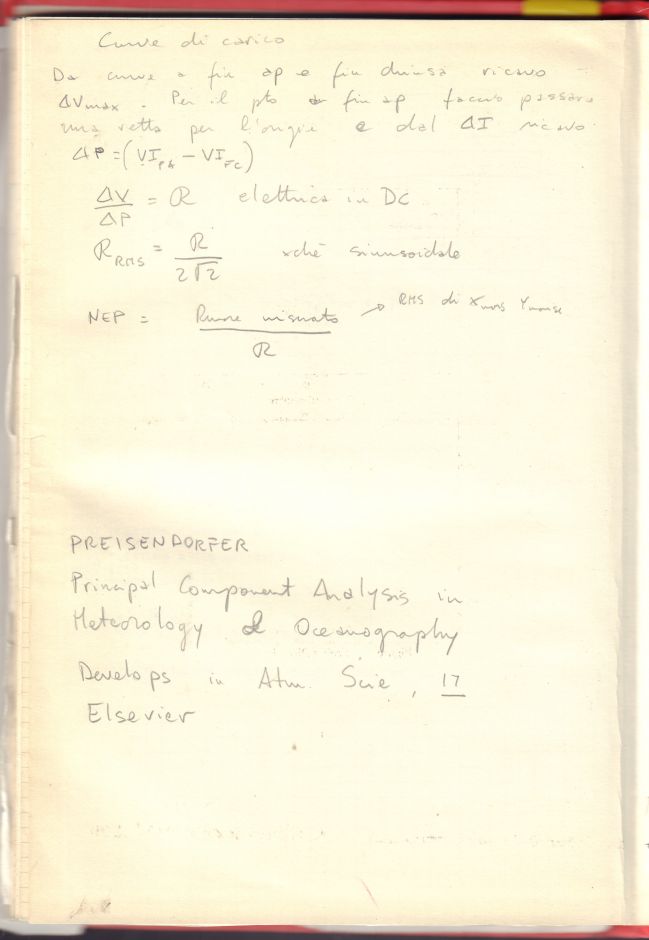 Curve di carico
Da curve a fin ap e fin chiusa ricavo
ΔVmax. Per il pto a fin ap faccio passare
una retta per l'origine e dal ΔI ricavo
ΔP = (VI_PA − VI_FC)
ΔV/ΔP = R elettrica in DC
R_RMS = R/(2√2) xchè sinusoidale
NEP = Rumore misurato / R → RMS di X_noise Y_noise
PREISENDORFER
Principal Component Analysis in
Meteorology & Oceanography
Develops in Atm. Scie, 17
Elsevier